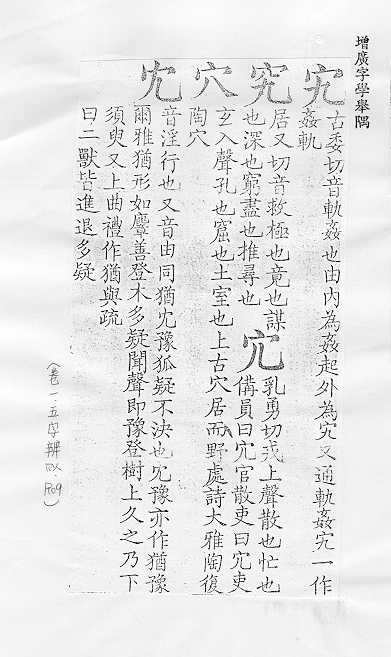 增廣字學舉隅
宄 古委切音軌姦也由內為姦起外為宄又通軌姦宄一作
姦軌
究 居又切音救極也竟也謀
也深也窮盡也推尋也
宂 乳勇切戎上聲散也忙也
備員曰宂官散吏曰宂吏
穴 玄入聲孔也窟也土室也上古穴居而野處詩大雅陶復
陶穴
冘 音淫行也又音由同猶冘豫狐疑不決也冘豫亦作猶豫
爾雅猶形如麐善登木多疑聞聲即豫登樹上久之乃下
須臾又上曲禮作猶與疏
曰二獸皆進退多疑
(卷一.五字辨似 P.09)